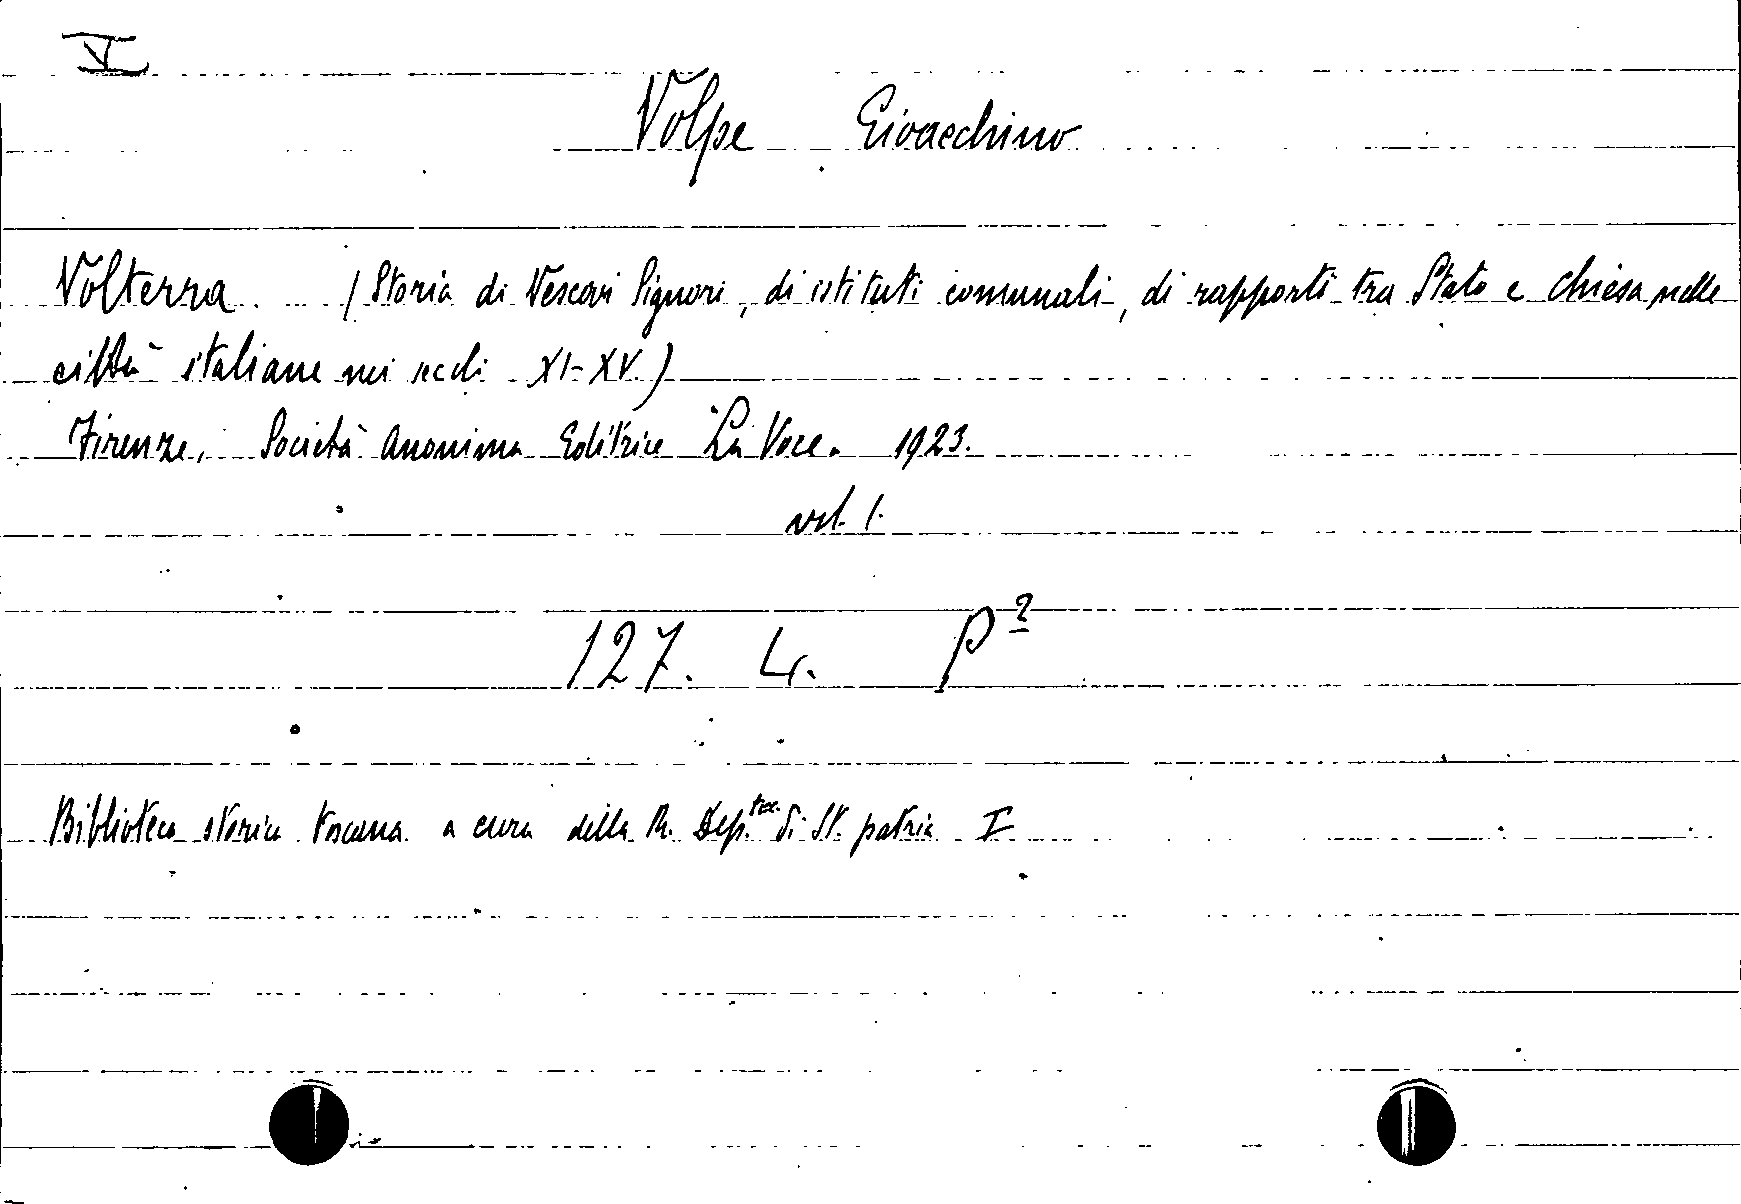 V
Volpe Gioacchino
Volterra. (Storia di Vescovi Signori, di istituti comunali, di rapporti tra Stato e Chiesa nelle
città italiane nei secoli XI-XV)
Firenze, Società Anonima Editrice "La Voce. 1923.
vol. 1.
127. L. P²
Biblioteca storica toscana a cura della R. Dep.ne di St. patria I